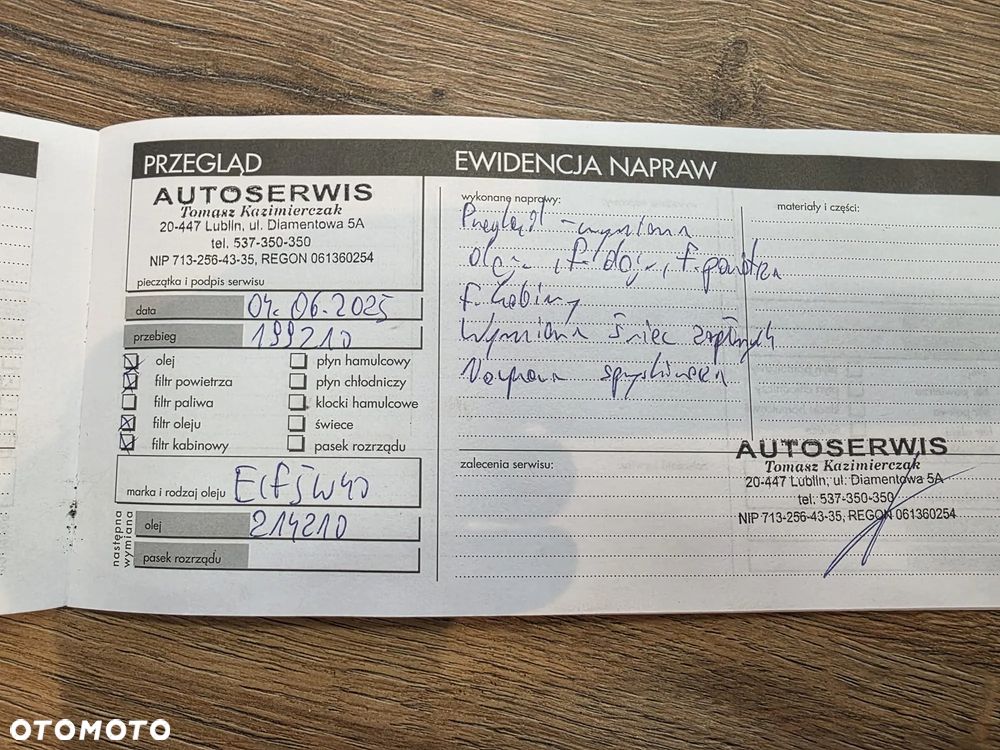 PRZEGLĄD
AUTOSERWIS
Tomasz Kazimierczak
20-447 Lublin, ul. Diamentowa 5A
tel. 537-350-350
NIP 713-256-43-35, REGON 061360254
pieczątka i podpis serwisu
data 04.06.2025
przebieg 199210
olej
filtr powietrza
filtr paliwa
filtr oleju
filtr kabinowy
płyn hamulcowy
płyn chłodniczy
klocki hamulcowe
świece
pasek rozrządu
marka i rodzaj oleju Elf 5W40
następna wymiana
olej 214210
pasek rozrządu
EWIDENCJA NAPRAW
wykonane naprawy:
Przegląd - wymiana
oleju, f. oleju, f. powietrza
f. kabiny
Wymiana świec zapłonowych
Naprawa spryskiwacza
materiały i części:
zalecenia serwisu:
AUTOSERWIS
Tomasz Kazimierczak
20-447 Lublin, ul. Diamentowa 5A
tel. 537-350-350
NIP 713-256-43-35, REGON 061360254
OTOMOTO